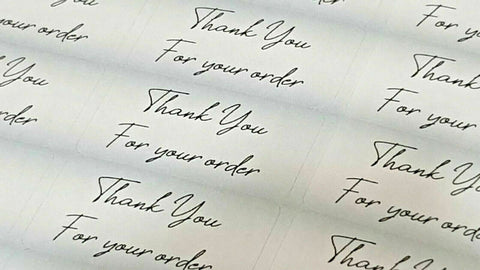 your order
Thank You
For your order
For y
You
order
Thank You
For your order
Thank
For your
Thank You
For your order
Thank You
For your ord
Thank